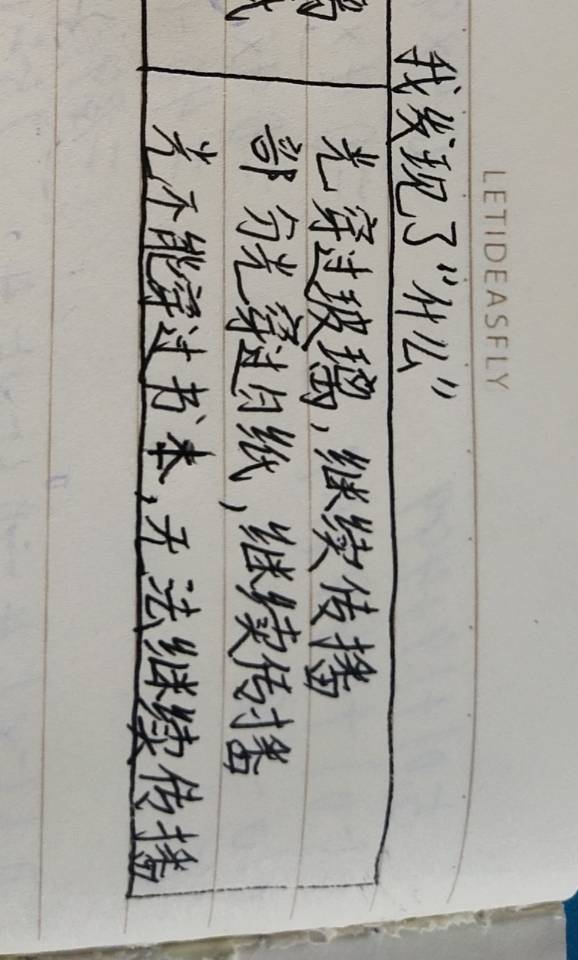 LETIDEASFLY
我发现了“什么”
光穿过玻璃，继续传播
部分光穿过白纸，继续传播
光不能穿过书本，无法继续传播